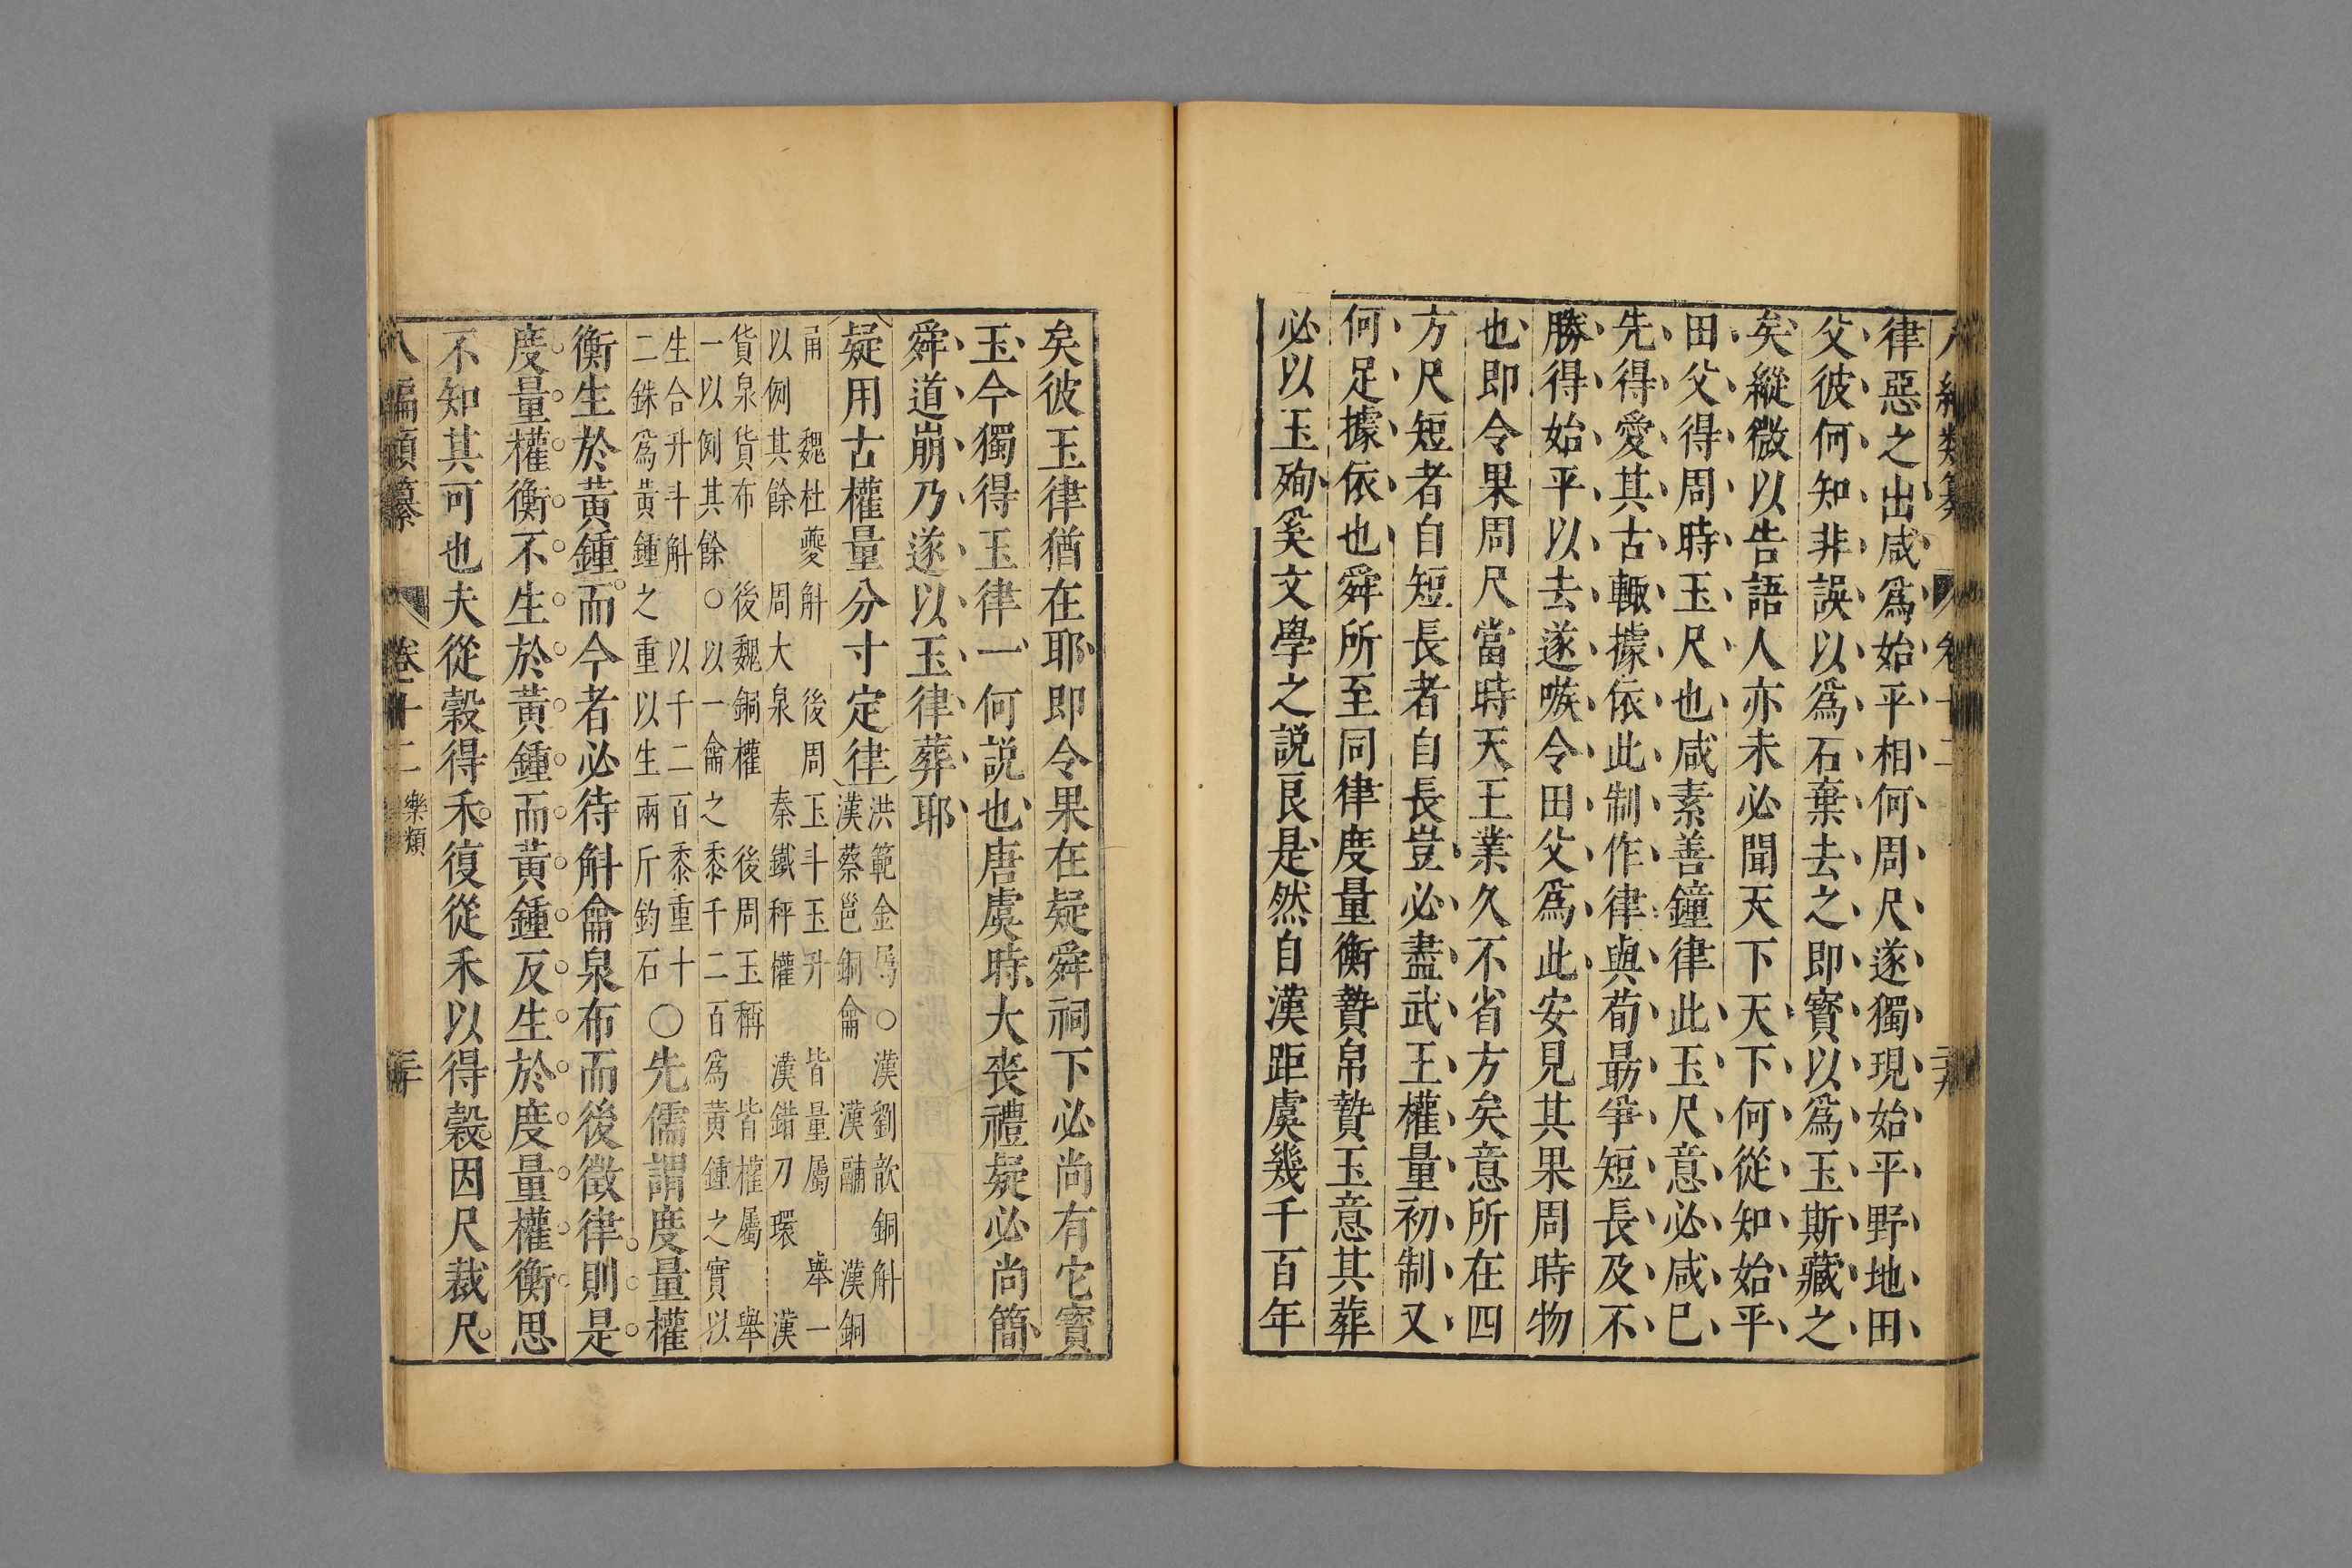 律惡之出咸爲始平相何周尺遂獨現始平野地田
父彼何知非誤以爲石棄去之即寳以爲玉斯藏之
矣縱微以告語人亦未必聞天下天下何從知始平
田父得周時玉尺也咸素善鐘律此玉尺意必咸巳
先得愛其古輙據依此制作律與荀朂爭短長及不
勝得始平以去遂嗾令田父爲此安見其果周時物
也即令果周尺當時天王業久不省方矣意所在四
方尺短者自短長者自長豈必盡武王權量初制又
何足據依也舜所至同律度量衡贄帛贄玉意其葬
必以玉殉奚文學之説良是然自漢距虞幾千百年
矣彼玉律猶在耶即令果在疑舜祠下必尚有它寳
玉今獨得玉律一何説也唐虞時大喪禮疑必尚簡
舜道崩乃遂以玉律葬耶
疑用古權量分寸定律
洪範金屬○漢劉歆銅斛
漢蔡邕銅龠 漢鬴 漢銅
甬 魏杜夔斛 後周玉斗玉升 皆量屬 舉一
以例其餘 周大泉 秦鐵秤權 漢錯刀環 漢
貨泉貨布 後魏銅權 後周玉稱 皆權屬 舉
一以例其餘○以一龠之黍千二百爲黃鍾之實以
生合升斗斛 以千二百黍重十
二銖爲黃鍾之重以生兩斤鈞石
○先儒謂度量權
衡生於黃鍾而今者必待斛龠泉布而後徵律則是
度量權衡不生於黃鍾而黃鍾反生於度量權衡思
不知其可也夫從穀得禾復從禾以得穀因尺裁尺
八編類纂 卷十二 樂類 三十